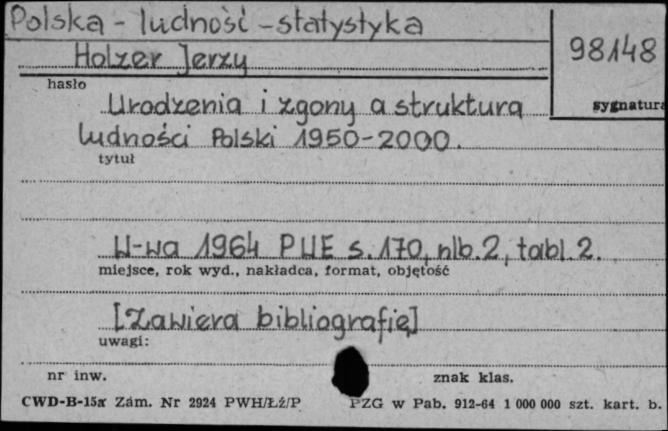 Polska - ludność - statystyka
Holzer Jerzy
98148
hasło
sygnatura
Urodzenia i zgony a struktura
ludności Polski 1950-2000.
tytuł
W-wa 1964 PWE s. 170, nlb. 2, tabl. 2.
miejsce, rok wyd., nakładca, format, objętość
[Zawiera bibliografię]
uwagi:
nr inw.
znak klas.
CWD-B-15a Zam. Nr 2924 PWH/Łź/P
PZG w Pab. 912-64 1 000 000 szt. kart. b.